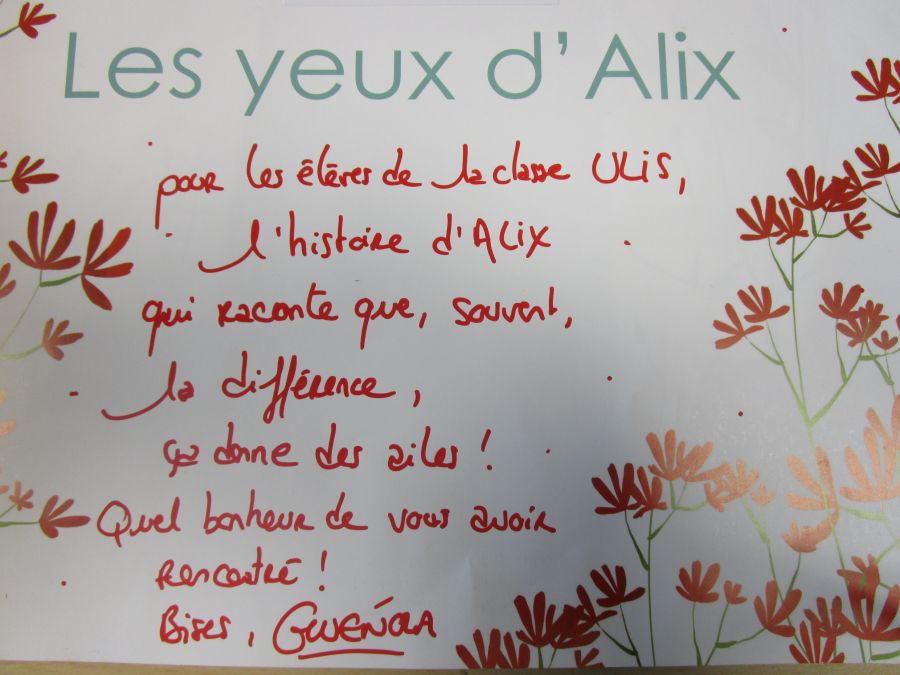 Les yeux d'Alix
pour les élèves de la classe ULIS,
l'histoire d'ALIX
qui raconte que, souvent,
la différence,
ça donne des ailes !
Quel bonheur de vous avoir
rencontré !
Bises, GWENOLA